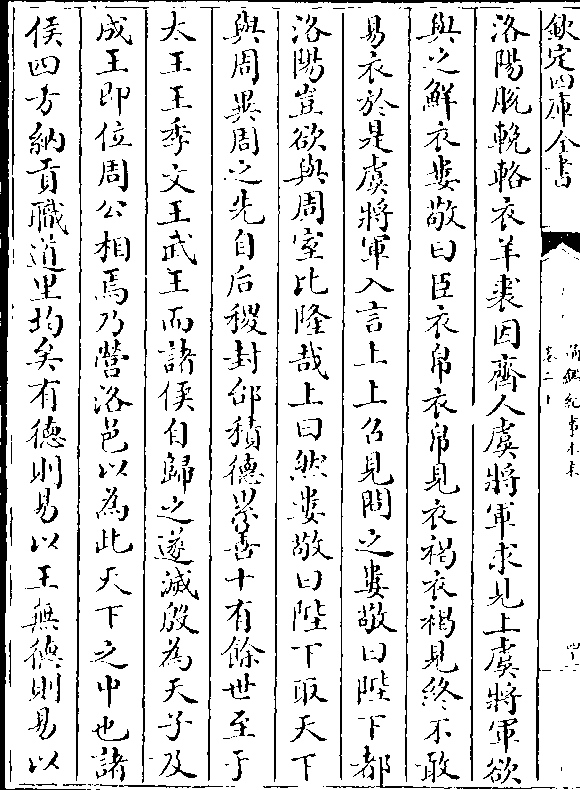 欽定四庫全書
通鑑紀事本末
卷二
洛陽脫輓輅衣羊裘因齊人虞將軍求見上虞將軍欲
與之鮮衣婁敬曰臣衣帛衣帛見衣褐衣褐見終不敢
易衣於是虞將軍入言上上召見問之婁敬曰陛下都
洛陽豈欲與周室比隆哉上曰然婁敬曰陛下取天下
與周異周之先自后稷封邰積德累善十有餘世至于
太王王季文王武王而諸侯自歸之遂滅殷為天子及
成王即位周公相焉乃營洛邑以為此天下之中也諸
侯四方納貢職道里均矣有德則易以王無德則易以